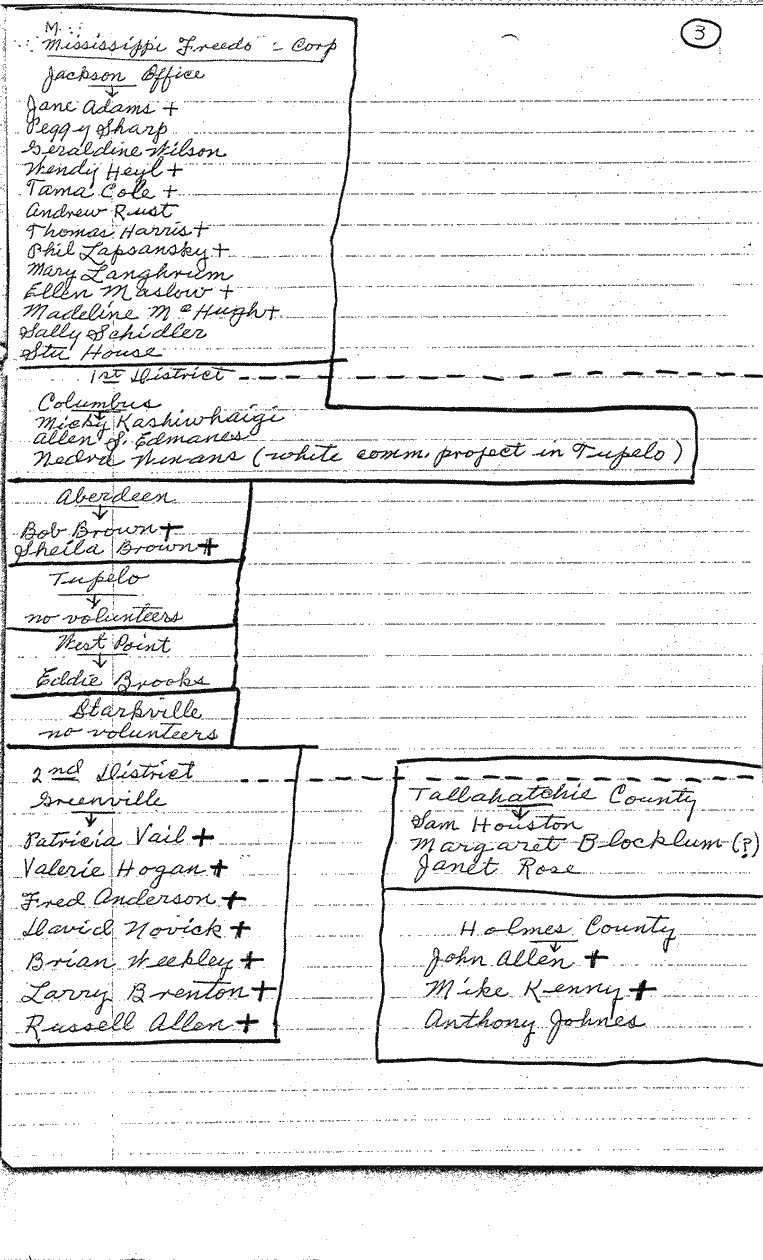 3
M
Mississippi Freedo - Corp
Jackson Office
Jane Adams +
Peggy Sharp
Geraldine Wilson
Wendy Heyl +
Tama Cole +
Andrew Rust
Thomas Harris +
Phil Lapsansky +
Mary Langhrum
Ellen Maslow +
Madeline McHugh +
Sally Schidler
Stu House
1st District
Columbus
Micky Kashiwhaigi
Allen S. Edmanes
Nedra Winans (white comm. project in Tupelo)
Aberdeen
Bob Brown +
Sheila Brown +
Tupelo
no volunteers
West Point
Eddie Brooks
Starkville
no volunteers
2nd District
Greenville
Patricia Vail +
Valerie Hogan +
Fred Anderson +
David Novick +
Brian Weekley +
Larry Brenton +
Russell Allen +
Tallahatchie County
Sam Houston
Margaret Blocklum (?)
Janet Rose
Holmes County
John Allen +
Mike Kenny +
Anthony Johnes